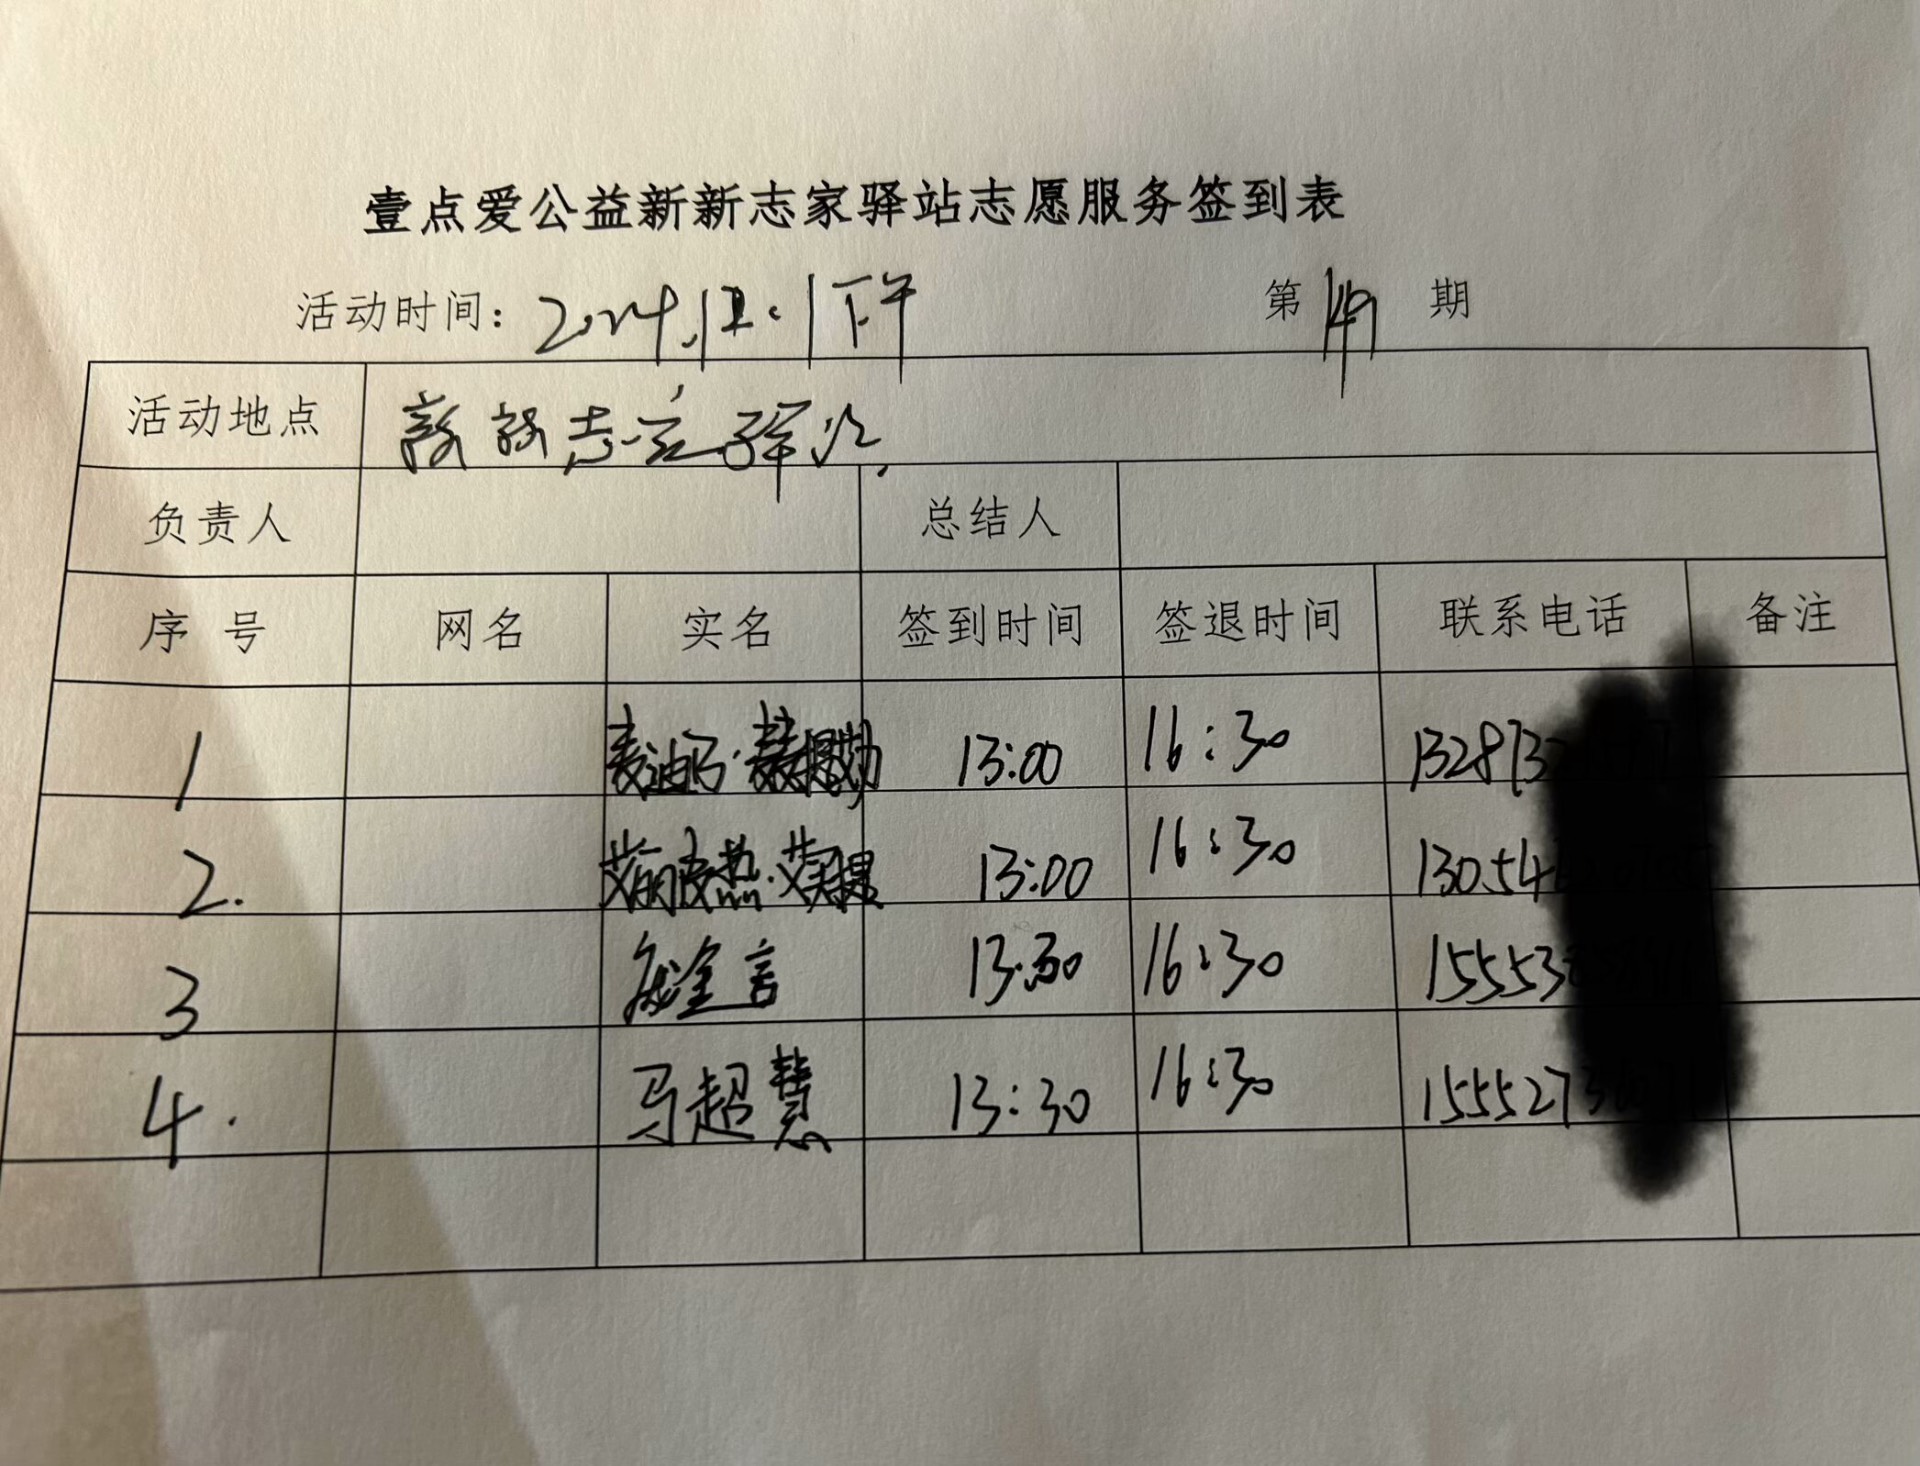 壹点爱公益新新志家驿站志愿服务签到表
活动时间：2024.12.1下午 第149期
活动地点 新新志家驿站
负责人 总结人
序号 网名 实名 签到时间 签退时间 联系电话 备注
1 麦迪 13:00 16:30 132873
2. 艾丽皮热·艾提 13:00 16:30 13054
3 金言 13:30 16:30 15553
4. 马超慧 13:30 16:30 155527